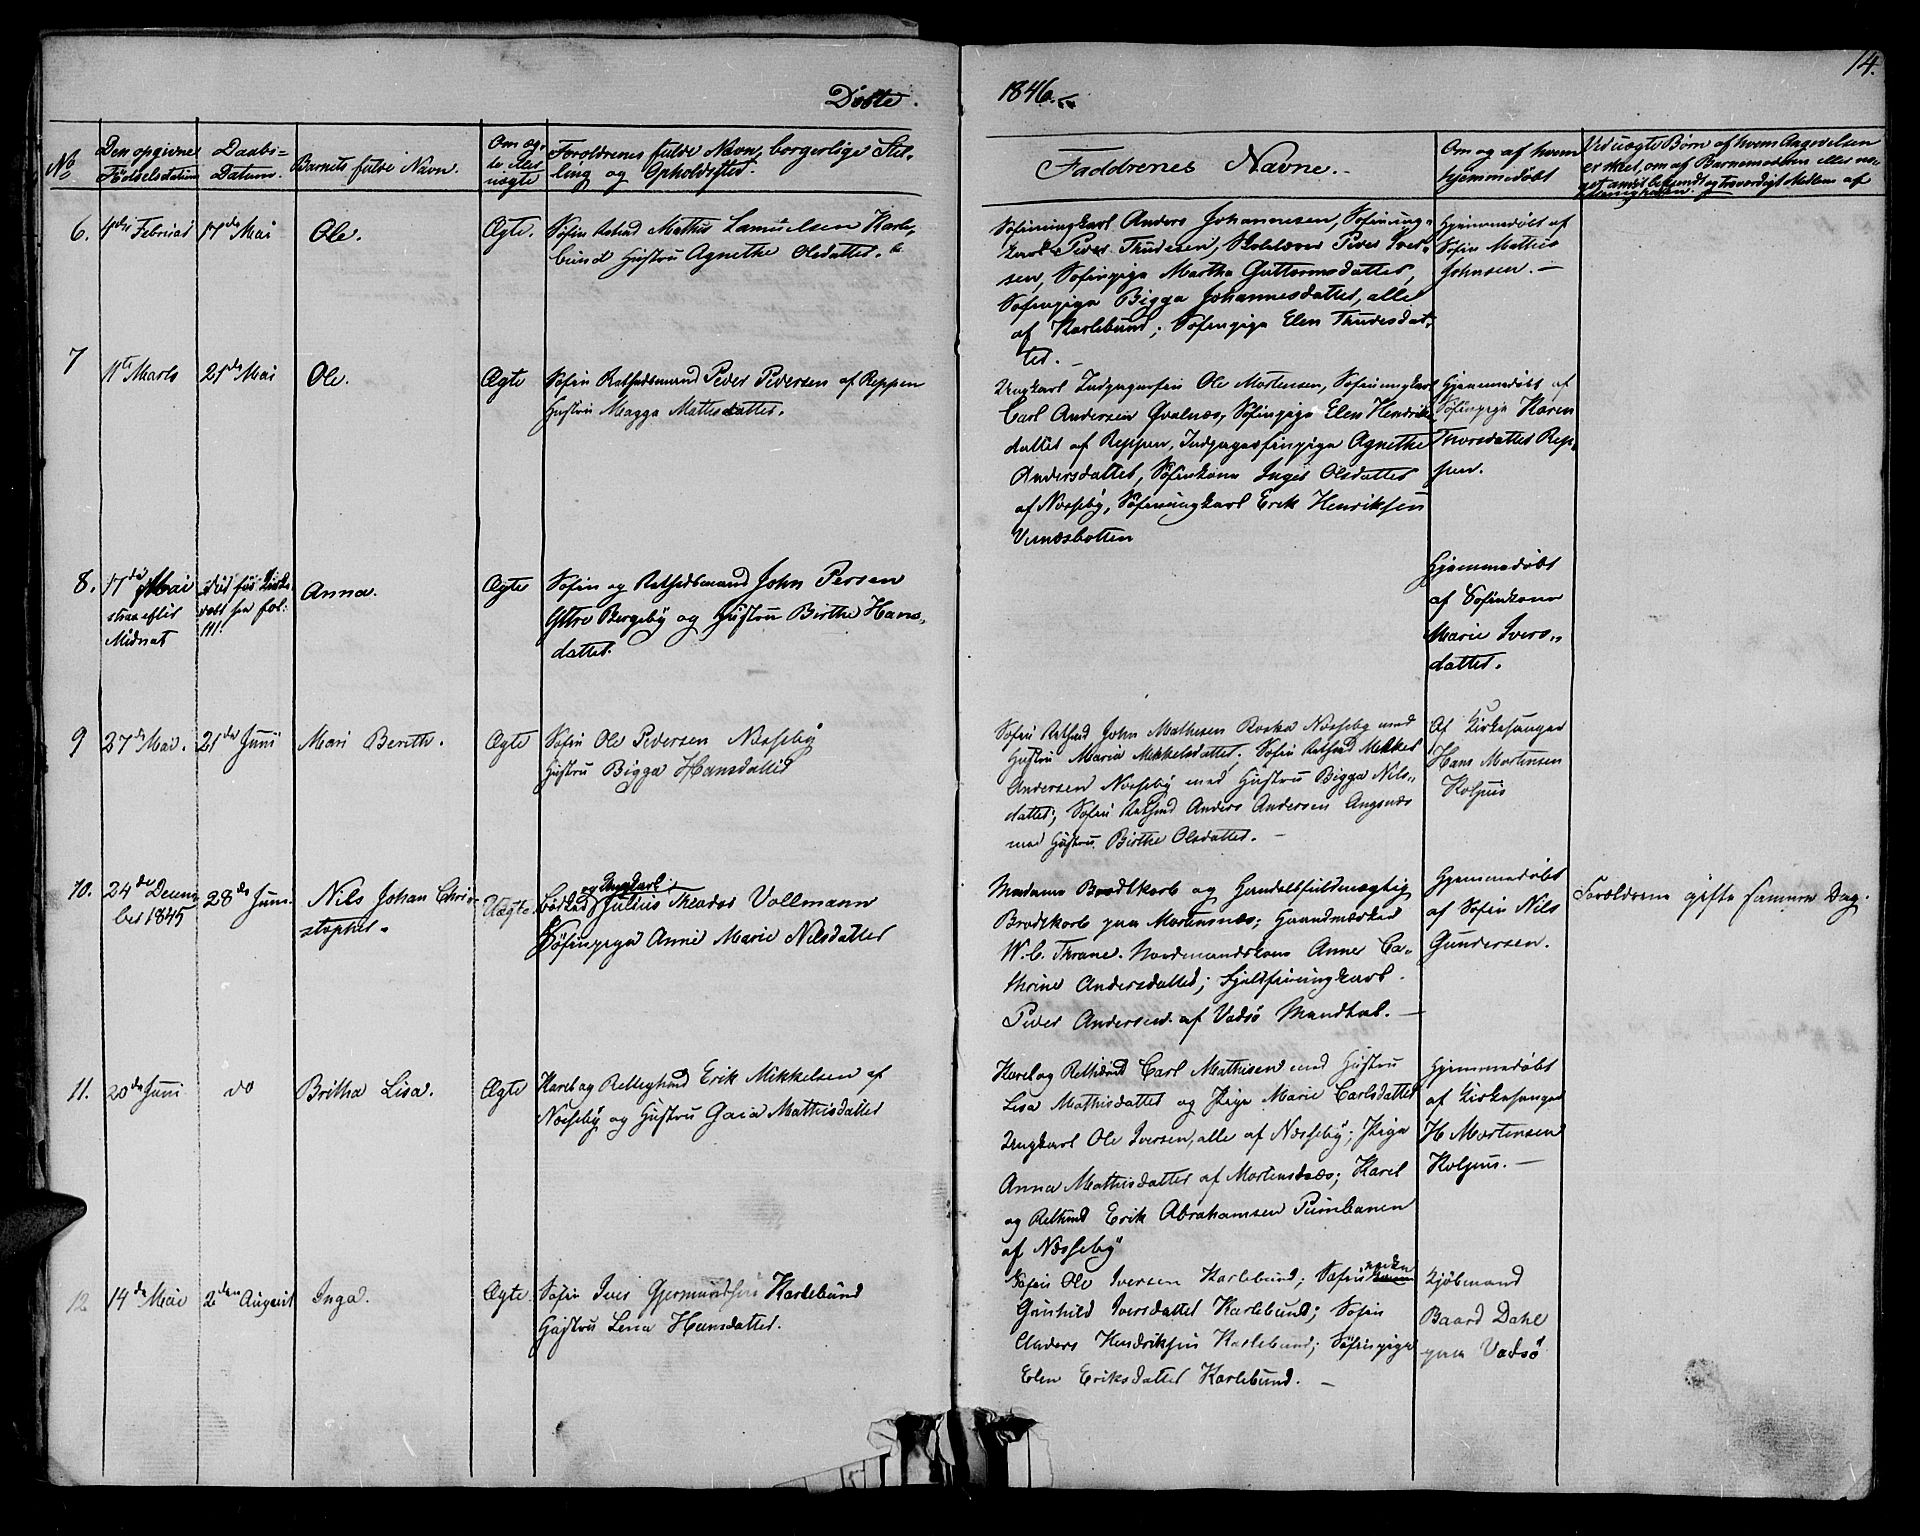 14.
Døbte.
1846.
No
Den opgivne
Fødselsdatum
Daabs-
Datum.
Barnets fulde Navn.
Om æg-
te eller
uægte
Forældrenes fulde Navn, borgerlige Stil-
ling og Opholdssted.
Faddrenes Navne.
Om og af hvem
hjemmedøbt
Ved uægte Børn af hvem Angivelsen
er skeet, om af Barnemoderen eller no-
get andet bekjendt og troværdigt Medlem af
Menigheden.
6.
Februar
17de Mai
Ole.
Ægte.
Søfin Mathis Samuelsen Karle-
bund Hustru Agnethe Olsdatter.
Søfinungkarl Anders Johannesen, Søfinung-
karl Peder Thudesen, Skolelærer Peder Iver-
sen, Søfinpige Martha Guttormsdatter,
Søfinpige Bigga Johannesdatter, alle
af Karlebund; Søfinpige Elen Thudesdat-
ter.
Hjemmedøbt af
Søfin Mathis
Johnsen.
7
11te Marts
21de Mai
Ole.
Ægte
Søfin Retledsmand Peder Pedersen af Reppen
Hustru Magga Mathisdatter.
Ungkarl Ole Mortensen, Søfinungkarl
Carl Andersen Qvalnæs, Søfinpige Elen Henriks-
datter af Reppen, Agnethe
Andersdatter, Søfinkone Inger Olsdatter
af Næsseby, Søfinungkarl Erik Henriksen
Vesnæsbotten
Hjemmedøbt af
Søfinpige Karen
Thorsdatter Rep-
pen.
8.
17de Mai
strax efter
Midnat
Død før
Anna.
Ægte
Søfin og Retledsmand John Persen
Yttre Bergeby og Hustru Birthe Hans-
datter.
Hjemmedøbt
af Søfinkone
Marie Ivers-
datter.
9
27de Mai.
21de Juni
Mari Berith.
Ægte
Søfin Ole Pedersen Næsseby
Hustru Bigga Hansdatter
Søfin John Mathesen Næsseby med
Hustru Maria Mikkelsdatter; Søfin Mikkel
Andersen Næsseby med Hustru Bigga Nils-
datter; Søfin Anders Andersen Angsnæs
med Hustru Birthe Olsdatter.
Af Kirkesanger
Hans Mortensen
Kolpus
10.
24de Decem-
ber 1845
28de Juni
Nils Johan Chri-
stopher.
Uægte.
og Ungkarl
Bødker Julius Theodor Vollmann
Søfinpige Anne Marie Nilsdatter
Madame Brodtkorb og Handelsfuldmægtig
Brodtkorb paa Mortensnæs; Haandværker
W. C. Thrane. Nordmandskone Anne Ca-
thrine Andersdatter; Fjeldfinungkarl
Peder Andersen af Vadsø Mandtal.
Hjemmedøbt
af Søfin Nils
Gundersen.
Forældrene gifte samme Dag.
11.
20de Juni
do
Britha Lisa.
Ægte
Karel og Erik Mikkelsen af
Næsseby og Hustru Gaia Mathisdatter
Karel og Carl Mathisen med Hustru
Lisa Mathisdatter og Pige Marie Carlsdatter
Ungkarl Ole Iversen, alle af Næsseby; Pige
Anna Mathisdatter af Mortensnæs; Karel
og Erik Abrahamsen
af Næsseby
Hjemmedøbt
af Kirkesanger
H Mortensen
Kolpus.
12
14de Mai
2den August
Inga.
Ægte.
Søfin Iver Gjermundsen Karlebund
Hustru Lena Hansdatter.
Søfin Ole Iversen Karlebund; Søfin
Gunhild Iversdatter Karlebund; Søfin
Anders Hendriksen Karlebund; Søfinpige
Elen Eriksdatter Karlebund.
Kjøbmand
Baard Dahl
paa Vadsø